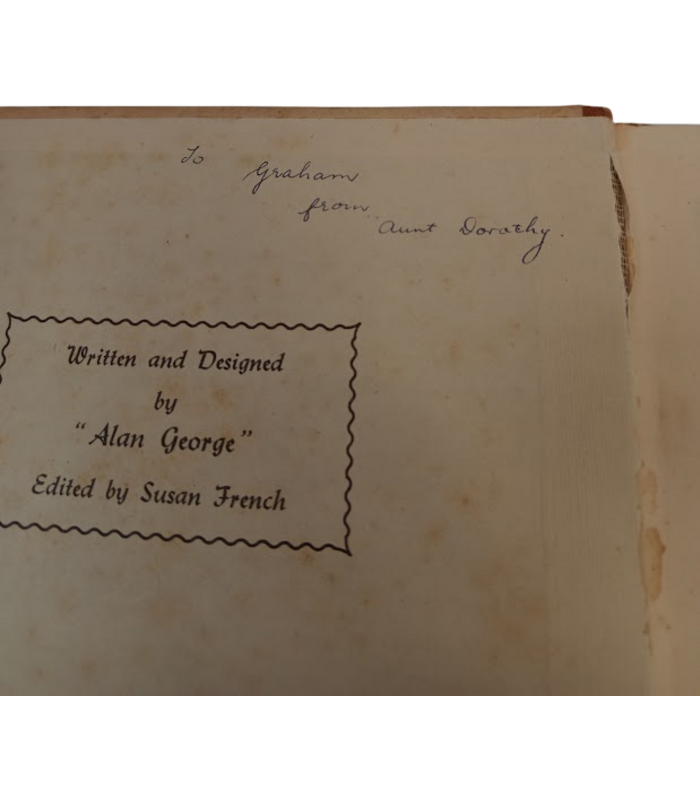 To
Graham
from
Aunt Dorothy.
Written and Designed
by
"Alan George"
Edited by Susan French